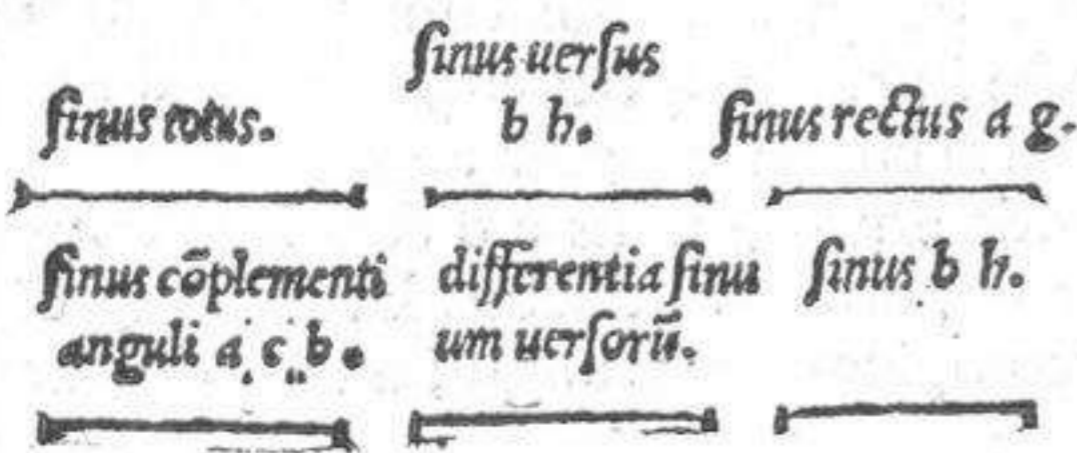 ſinus totus.
ſinus uerſus
b h.
ſinus rectus a g.
ſinus cõplementi
anguli a c b.
differentia ſinu
um uerſorũ.
ſinus b h.